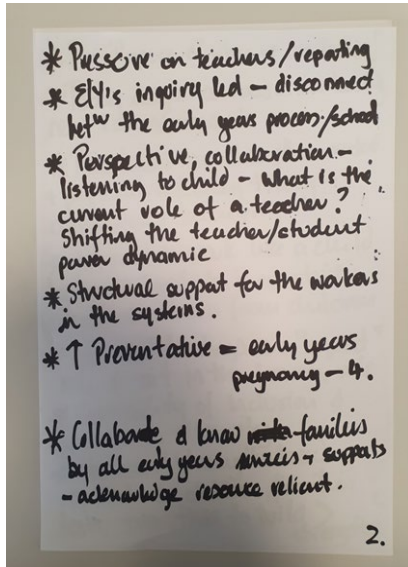 * Pressure on teachers/reporting
* E/Y's inquiry led – disconnect
betw the early years process/school
* Perspective, collaboration –
listening to child – what is the
current role of a teacher?
Shifting the teacher/student
power dynamic
* Structural support for the workers
in the systems.
* ↑ Preventative = early years
pregnancy – 4.
* Collaborate & know families
by all early years services + supports
– acknowledge resource relient.
2.